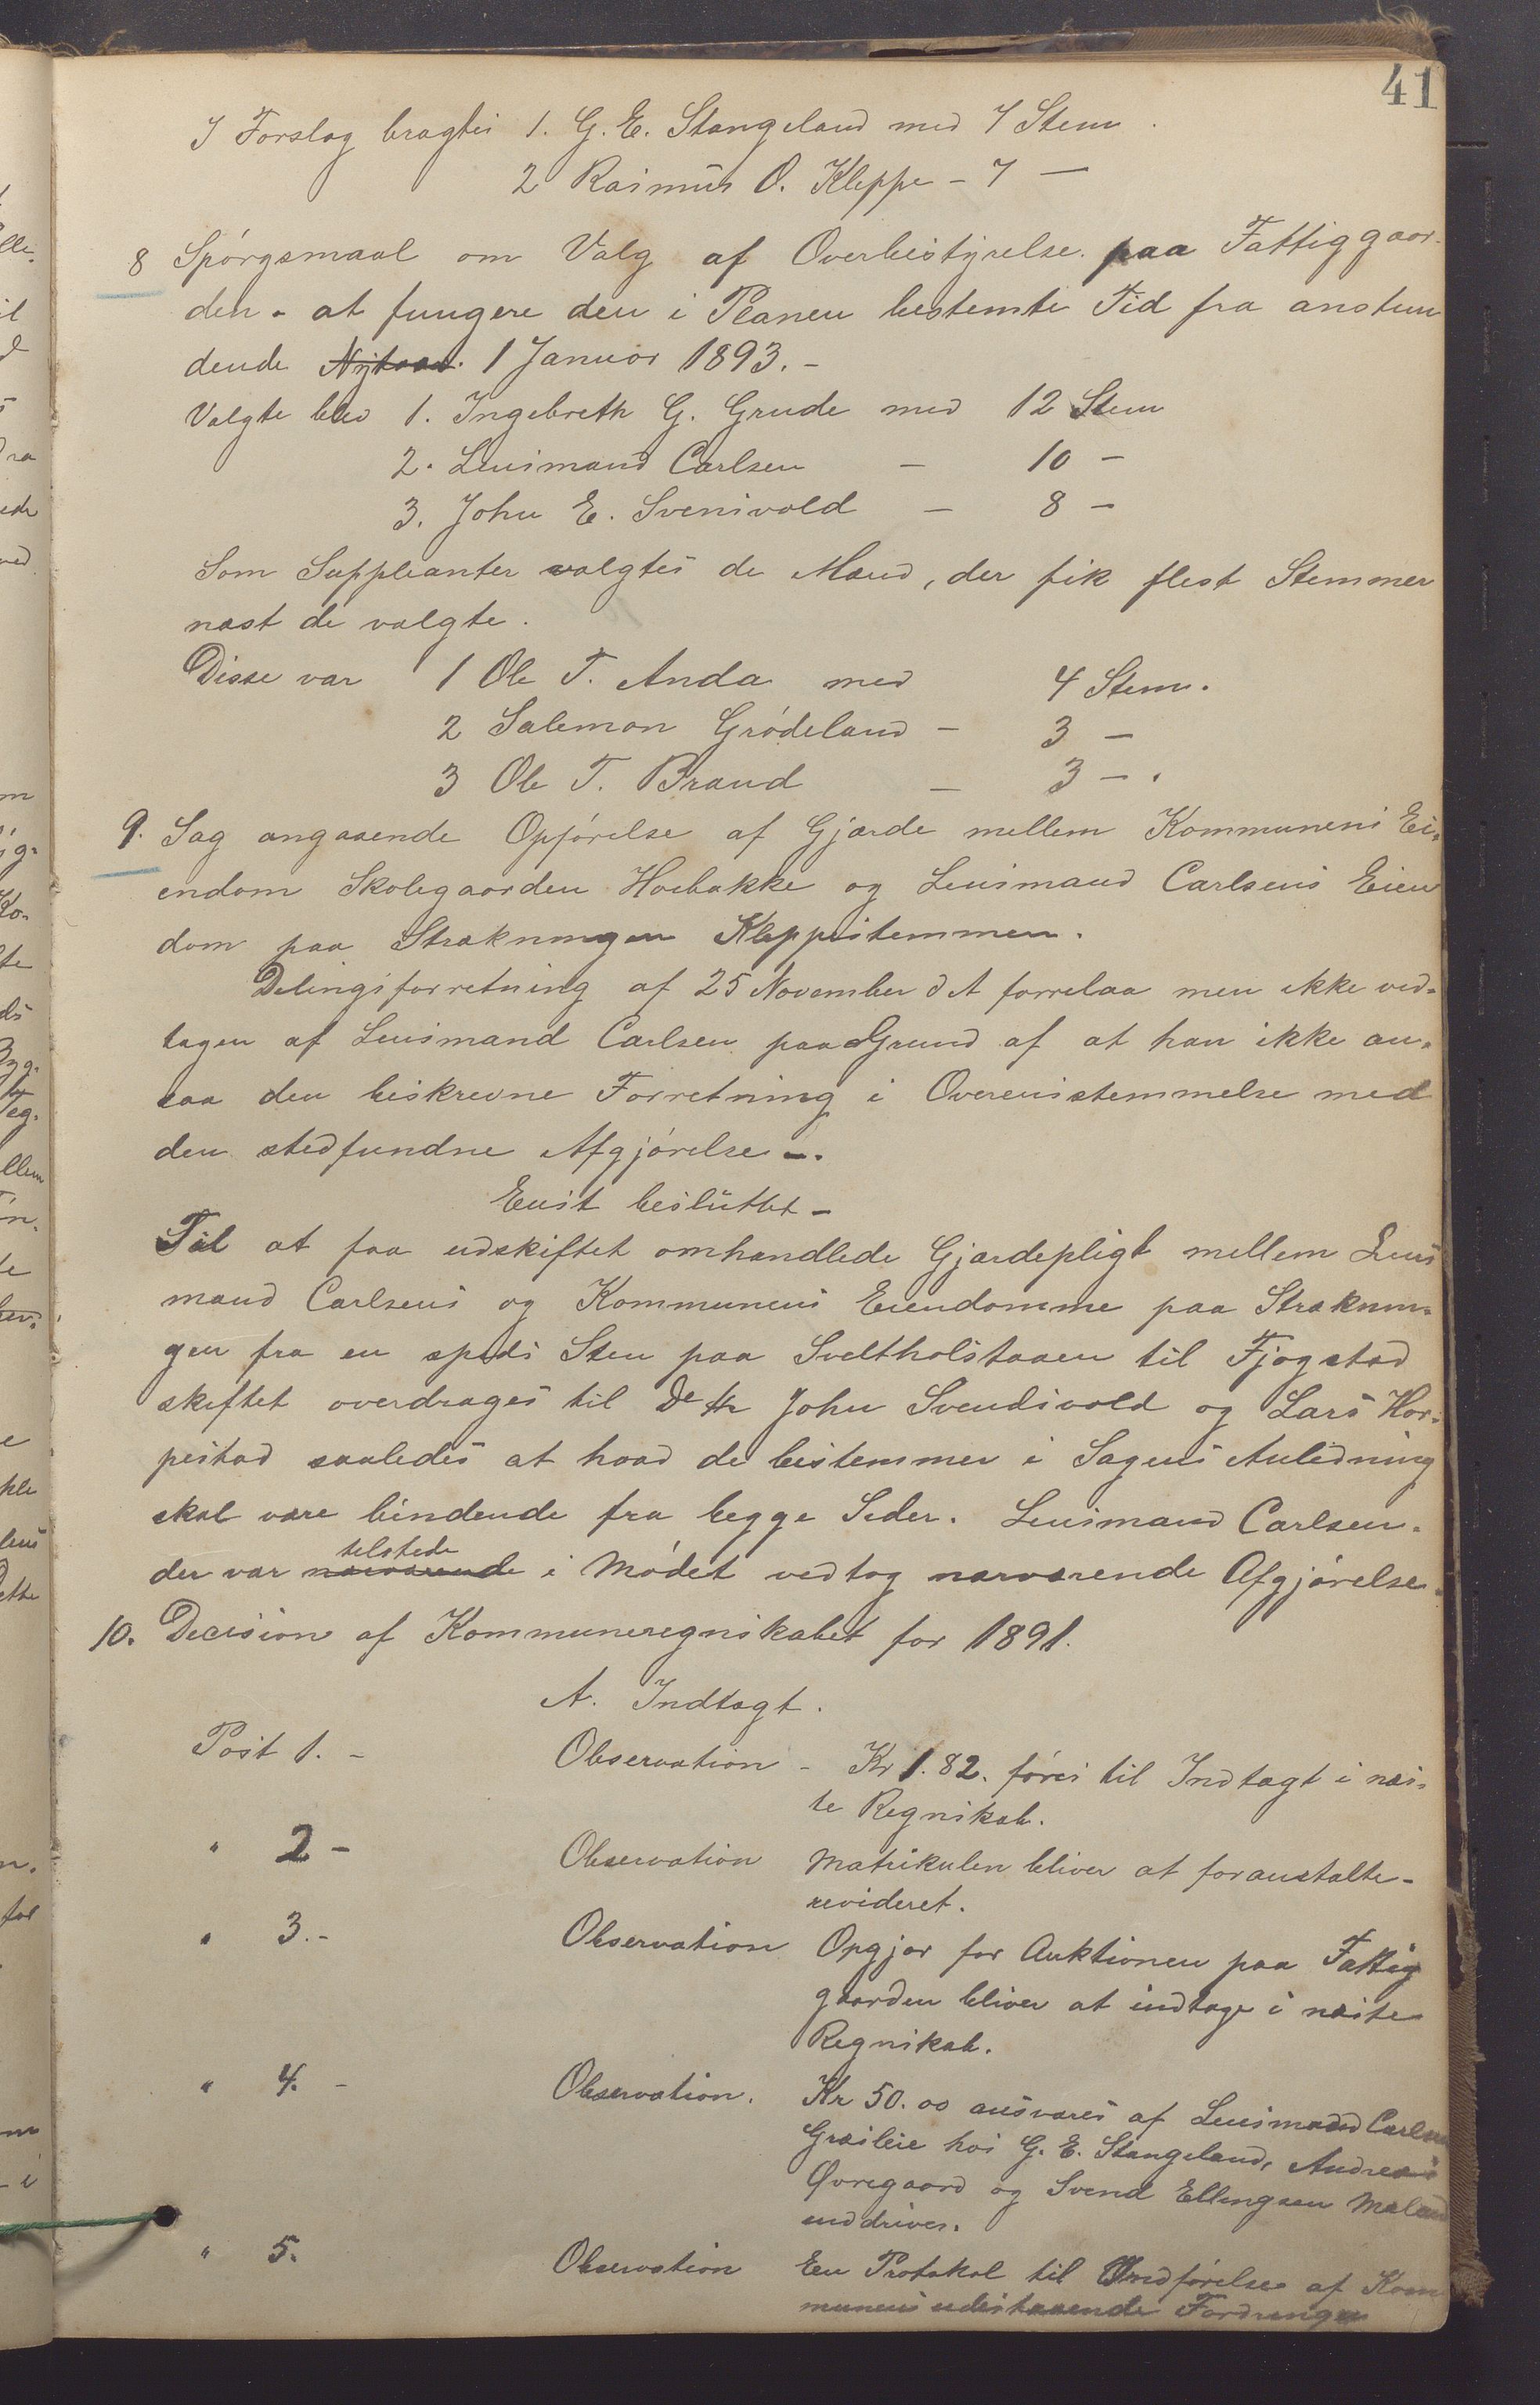 41
I Forslag bragtes 1. G. E. Stangeland med 7 Stem.
2 Rasmus O. Kleppe - 7 —
8 Spørgsmaal om Valg af Overbestyrelse paa Fattiggaar-
den - at fungere den i Planen bestemte Tid fra anstun
dende Nytaar. 1 Januar 1893. -
Valgte blev 1. Ingebreth G. Grude med 12 Stem
2. Lensmand Carlsen — 10 -
3. John E. Svensvold — 8 -
Som Suppleanter valgtes de Mænd, der fik flest Stemmer
næst de valgte.
Disse var 1 Ole T. Anda med 4 Stem.
2 Salemon Grødeland - 3 —
3 Ole T. Braud — 3 - .
9. Sag angaaende Opførelse af Gjærde mellem Kommunens Ei-
endom Skolegaarden Hoebakke og Lensmand Carlsens Eien
dom paa Strækningen Kleppestemmen.
Delingsforretning af 25 November d A forrelaa men ikke ved-
tagen af Lensmand Carlsen paa Grund af at han ikke an-
saa den beskrevne Forretning i Overensstemmelse med
den stedfundne Afgjørelse -.
Enst besluttet -
Til at faa udskiftet omhandlede Gjærdepligt mellem Lens
mand Carlsens og Kommunens Eiendomme paa Stræknin-
gen fra en spids Sten paa Sveltholstaaen til Fjogstad
skiftet overdrages til De Hr John Svendsvold og Lars Hor-
pestad saaledes at hvad de bestemmer i Sagens Anledning
skal være bindende fra begge Sider. Lensmand Carlsen.
der var nærværende tilstede i Mødet vedtog nærværende Afgjørelse.
10. Decision af Kommuneregnskabet for 1891.
A. Indtægt.
Post 1. - Observation - Kr 1.82. føres til Indtægt i næs-
te Regnskab.
" 2 - Observation Matrikulen bliver at foranstalte-
revideret.
" 3. - Observation Opgjør for Auktionen paa Fattig
gaarden bliver at indtage i næste
Regnskab.
" 4. - Observation. Kr 50.00 ansvares af Lensmand Carlsen
Græsleie hos G. E. Stangeland, Andreas
Øvregaard og Svend Ellingsen Meland
inddrives.
" 5. Observation En Protokol til Indførelse af Kom
munens udestaaende Fordringer